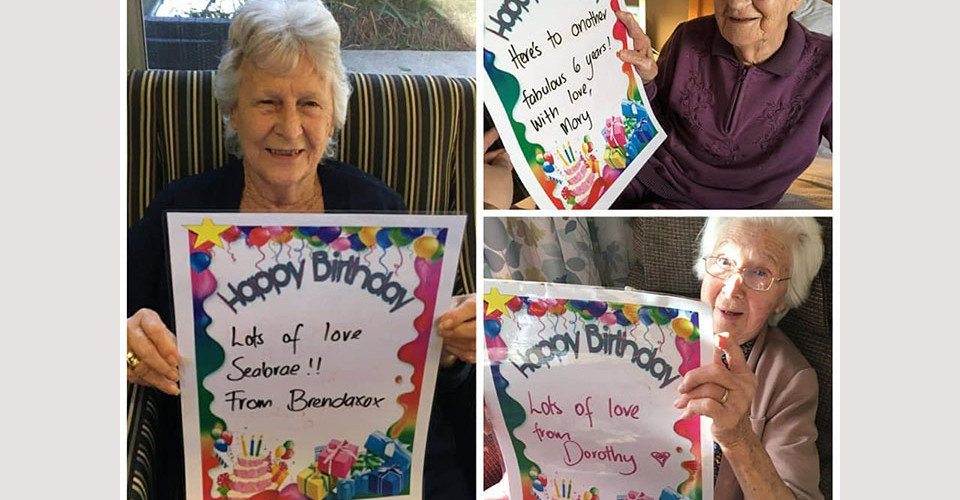 Happy Birthday
Lots of love
Seabrae!!
From Brendaxox
Happy
Here's to another
fabulous 6 years!
With love,
Mary
Happy Birthday
Lots of love
from
Dorothy